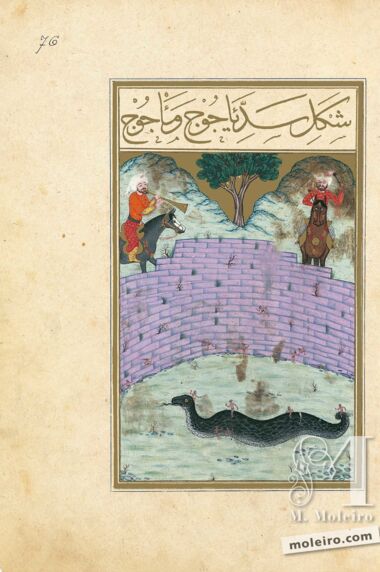 76
شكل سدّ ياجوج و ماجوج
M
M. Moleiro
moleiro.com